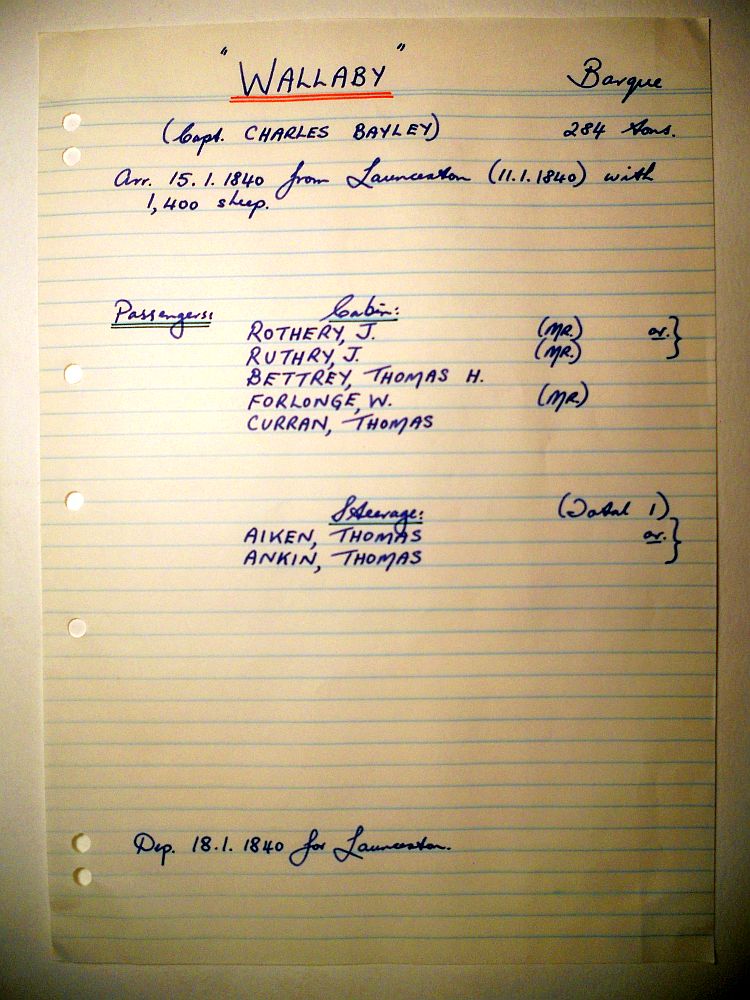 "WALLABY" Barque
(Capt. CHARLES BAYLEY) 284 tons.
Arr. 15.1.1840 from Launceston (11.1.1840) with
1,400 sheep.
Passengers: Cabin:
ROTHERY, J. (MR.) or. }
RUTHRY, J. (MR.)
BETTREY, THOMAS H.
FORLONGE, W. (MR.)
CURRAN, THOMAS
Steerage: (Total 1)
AIKEN, THOMAS or. }
ANKIN, THOMAS
Dep. 18.1.1840 for Launceston.